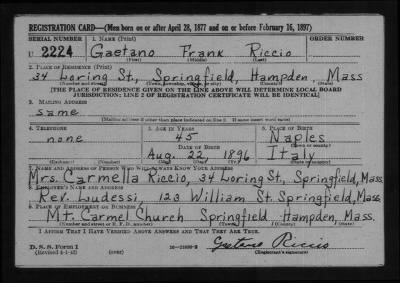 REGISTRATION CARD—(Men born on or after April 28, 1877 and on or before February 16, 1897)
SERIAL NUMBER 1. NAME (Print) ORDER NUMBER
U 2224 Gaetano Frank Riccio
(First) (Middle) (Last)
2. PLACE OF RESIDENCE (Print)
34 Loring St., Springfield, Hampden, Mass
(Number and street) (Town, township, village, or city) (County) (State)
[THE PLACE OF RESIDENCE GIVEN ON THE LINE ABOVE WILL DETERMINE LOCAL BOARD
JURISDICTION; LINE 2 OF REGISTRATION CERTIFICATE WILL BE IDENTICAL]
3. MAILING ADDRESS
same
[Mailing address if other than place indicated on line 2. If same insert word same]
4. TELEPHONE 5. AGE IN YEARS 6. PLACE OF BIRTH
none 45 Naples
DATE OF BIRTH (Town or county)
Aug. 22 1896 Italy
(Exchange) (Number) (Mo.) (Day) (Yr.) (State or country)
7. NAME AND ADDRESS OF PERSON WHO WILL ALWAYS KNOW YOUR ADDRESS
Mrs. Carmella Riccio, 34 Loring St., Springfield, Mass.
8. EMPLOYER'S NAME AND ADDRESS
Rev. Ludessi, 123 William St. Springfield, Mass.
9. PLACE OF EMPLOYMENT OR BUSINESS
Mt. Carmel Church Springfield Hampden, Mass.
(Number and street or R. F. D. number) (Town) (County) (State)
I AFFIRM THAT I HAVE VERIFIED ABOVE ANSWERS AND THAT THEY ARE TRUE.
D. S. S. Form 1 Gaetano Riccio
(Revised 4-1-42) (over) (Registrant's signature)